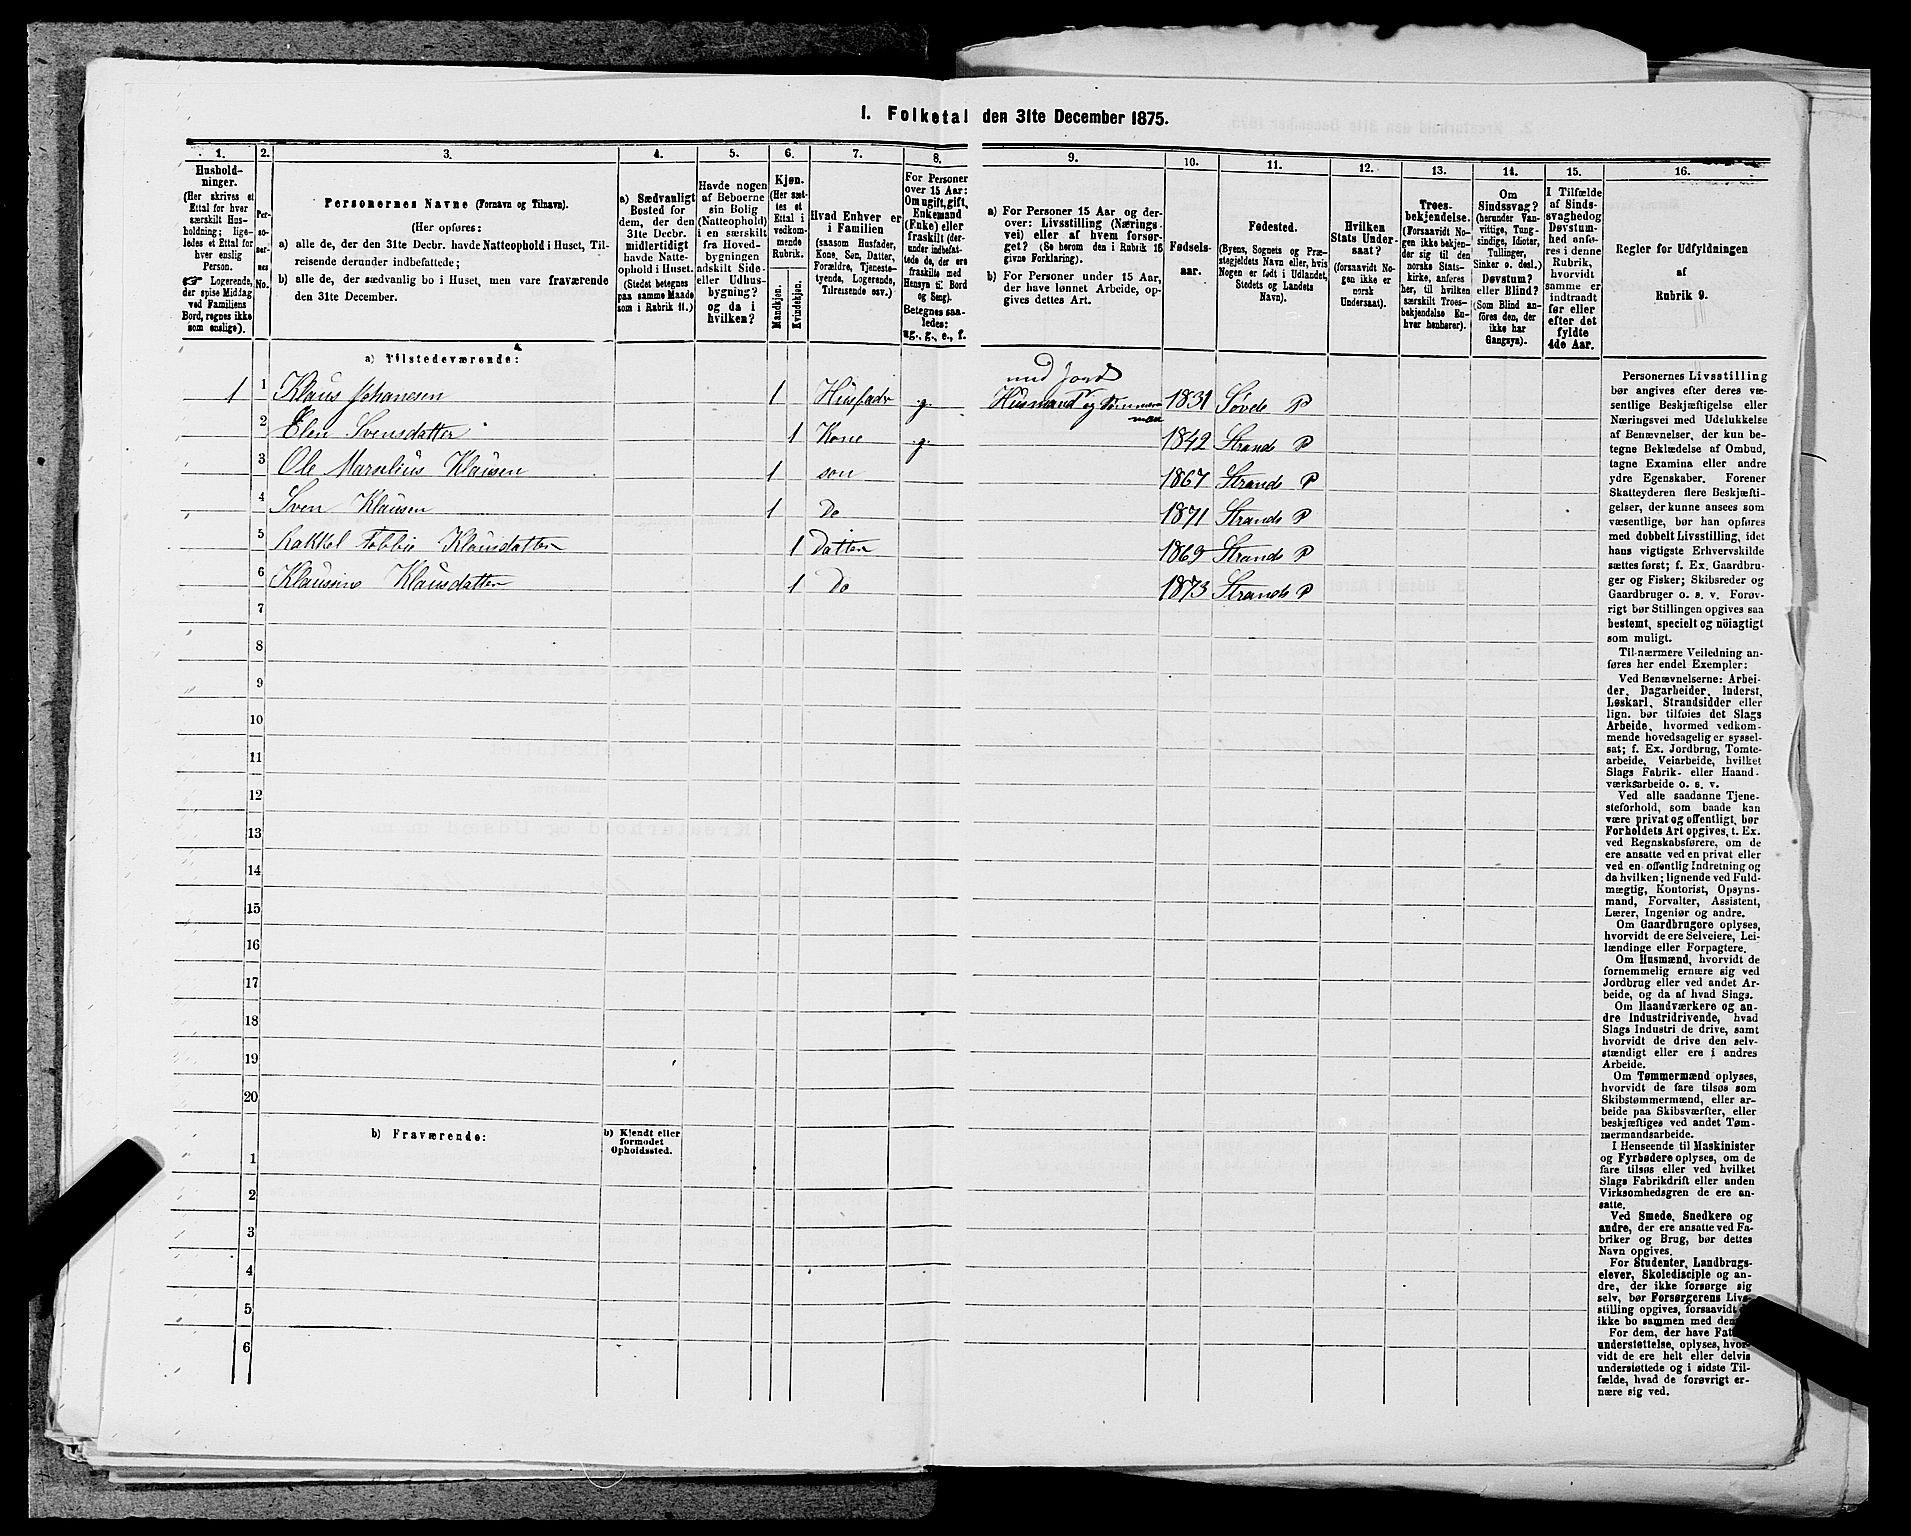 1. Folketal den 31te December 1875.
1. 2. 3. 4. 5. 6. 7. 8. 9. 10. 11. 12. 13. 14. 15. 16.
Hushold-
ninger.
(Her skrives et
Ettal for hver
særskilt Hus-
holdning; lige-
ledes et Ettal for
hver enslig
Person.
☞ Logerende,
der spise Middag
ved Familiens
Bord, regnes ikke
som enslige).
Per-
so-
ner-
nes
No.
Personernes Navne (Fornavn og Tilnavn).
(Her opføres:
a) alle de, der den 31te Decbr. havde Natteophold i Huset, Til-
reisende derunder indbefattede;
b) alle de, der sædvanlig bo i Huset, men vare fraværende
den 31te December.
a) Sædvanligt
Bosted for
dem, der den
31te Decbr.
midlertidigt
havde Natte-
ophold i Huset.
(Stedet betegnes
paa samme Maade
som i Rubrik 11.)
Havde nogen
af Beboerne
sin Bolig
(Natteophold)
i en særskilt
fra Hoved-
bygningen
adskilt Side-
eller Udhus-
bygning?
og da i
hvilken?
Kjøn.
(Her sæt-
tes et
Ettal i
vedkom-
mende
Rubrik.
Mandkjøn.
Kvindekjøn.
Hvad Enhver er
i Familien
(saasom Husfader,
Kone, Søn, Datter,
Forældre, Tjeneste-
tyende, Logerende,
Tilreisende osv.)
For Personer
over 15 Aar:
Om ugift, gift,
Enkemand
(Enke) eller
fraskilt (der-
under indbefat-
tede de, der ere
fraskilte med
Hensyn til Bord
og Seng).
Betegnes saa-
ledes:
ug., g., e., f.
a) For Personer 15 Aar og der-
over: Livsstilling (Nærings-
vei) eller af hvem forsør-
get? (Se herom den i Rubrik 16
givne Forklaring).
b) For Personer under 15 Aar,
der have lønnet Arbeide, op-
gives dettes Art.
Fødsels-
aar.
Fødested.
(Byens, Sognets og Præ-
stegjeldets Navn eller, hvis
Nogen er født i Udlandet,
Stedets og Landets
Navn).
Hvilken
Stats Under-
saat?
(forsaavidt No-
gen ikke er
norsk
Undersaat).
Troes-
bekjendelse.
(Forsaavidt No-
gen ikke bekjen-
der sig til den
norske Stats-
kirke, anføres
her, til hvilken
særskilt Troes-
bekjendelse En-
hver henhører).
Om
Sindssvag?
(herunder Van-
vittige, Tung-
sindige, Idioter,
Tullinger,
Sinker o. desl.)
Døvstum?
eller Blind?
(Som Blind an-
føres den, der
ikke har
Gangsyn).
I Tilfælde
af Sinds-
svaghed og
Døvstum-
hed anfø-
res i denne
Rubrik,
hvorvidt
samme er
indtraadt
før eller
efter det
fyldte
4de Aar.
Regler for Udfyldningen
af
Rubrik 9.
a) Tilstedeværende:
med Jord
1 1 Klaus Johanesen 1 Husfadr g. Husmand og Tømmer- 1831 Søvde P
man
2 Elen Svensdatter 1 Kone g. 1842 Strands P
3 Ole Marselius Klausen 1 son 1867 Strands P
4 Sven Klausen 1 Do 1871 Strands P
5 Rakkel Tobbie Klausdatter 1 Datter 1869 Strands P
6 Klausine Klausdatter 1 Do 1873 Strands P
7
8
9
10
11
12
13
14
15
16
17
18
19
20
b) Fraværende:
b) Kjendt eller
formodet
Opholdssted.
1
2
3
4
5
6
Personernes Livsstilling
bør angives efter deres væ-
sentlige Beskjæftigelse eller
Næringsvei med Udelukkelse
af Benævnelser, der kun be-
tegne Beklædelse af Ombud,
tagne Examina eller andre
ydre Egenskaber. Forener
Skatteyderen flere Beskjæfti-
gelser, der kunne ansees som
væsentlige, bør han opføres
med dobbelt Livsstilling, idet
hans vigtigste Erhvervskilde
sættes først; f. Ex. Gaardbru-
ger og Fisker; Skibsreder og
Gaardbruger o. s. v. Forøv-
rigt bør Stillingen opgives saa
bestemt, specielt og nöiagtigt
som muligt.
Til nærmere Veiledning an-
føres her endel Exempler:
Ved Benævnelserne: Arbei-
der, Dagarbeider, Inderst,
Løskarl, Strandsidder eller
lign. bør tilføies det Slags
Arbeide, hvormed vedkom-
mende hovedsagelig er syssel-
sat; f. Ex. Jordbrug, Tomte-
arbeide, Veiarbeide, hvilket
Slags Fabrik- eller Haand-
værksarbeide o. s. v.
Ved alle saadanne Tjene-
steforhold, som baade kan
være privat og offentligt, bør
Forholdets Art opgives, t. Ex.
ved Regnskabsførere, om de
ere ansatte ved en privat eller
ved en offentlig Indretning og
da hvilken; lignende ved Fuld-
mægtig, Kontorist, Opsyns-
mand, Forvalter, Assistent,
Lærer, Ingeniør og andre.
Om Gaardbrugere oplyses,
hvorvidt de ere Selveiere, Lei-
lændinge eller Forpagtere.
Om Husmænd, hvorvidt de
fornemmelig ernære sig ved
Jordbrug eller ved andet Ar-
beide, og da af hvad Slags.
Om Haandværkere og an-
dre Industridrivende, hvad
Slags Industri de drive, samt
hvorvidt de drive den selv-
stændigt eller ere i andres
Arbeide.
Om Tømmermænd oplyses,
hvorvidt de fare tilsøs som
Skibstømmermænd, eller ar-
beide paa Skibsværfter, eller
beskjæftiges ved andet Tøm-
mermandsarbeide.
I Henseende til Maskinister
og Fyrbødere oplyses, om de
fare tilsøs eller ved hvilket
Slags Fabrikdrift eller anden
Virksomhedsgren de ere an-
satte.
Ved Smede, Snedkere og
andre, der ere ansatte ved Fa-
briker og Brug, bør dettes
Navn opgives.
For Studenter, Landbrugs-
elever, Skoledisciple og an-
dre, der ikke forsørge sig
selv, bør Forsørgerens Livs-
stilling opgives, forsaavidt
ikke bo sammen med
For dem, der have
understøttelse, oplyses, hvor-
vidt de ere helt eller delvis
understøttede og i sidste Til-
fælde, hvad de forøvrigt er-
nære sig ved.